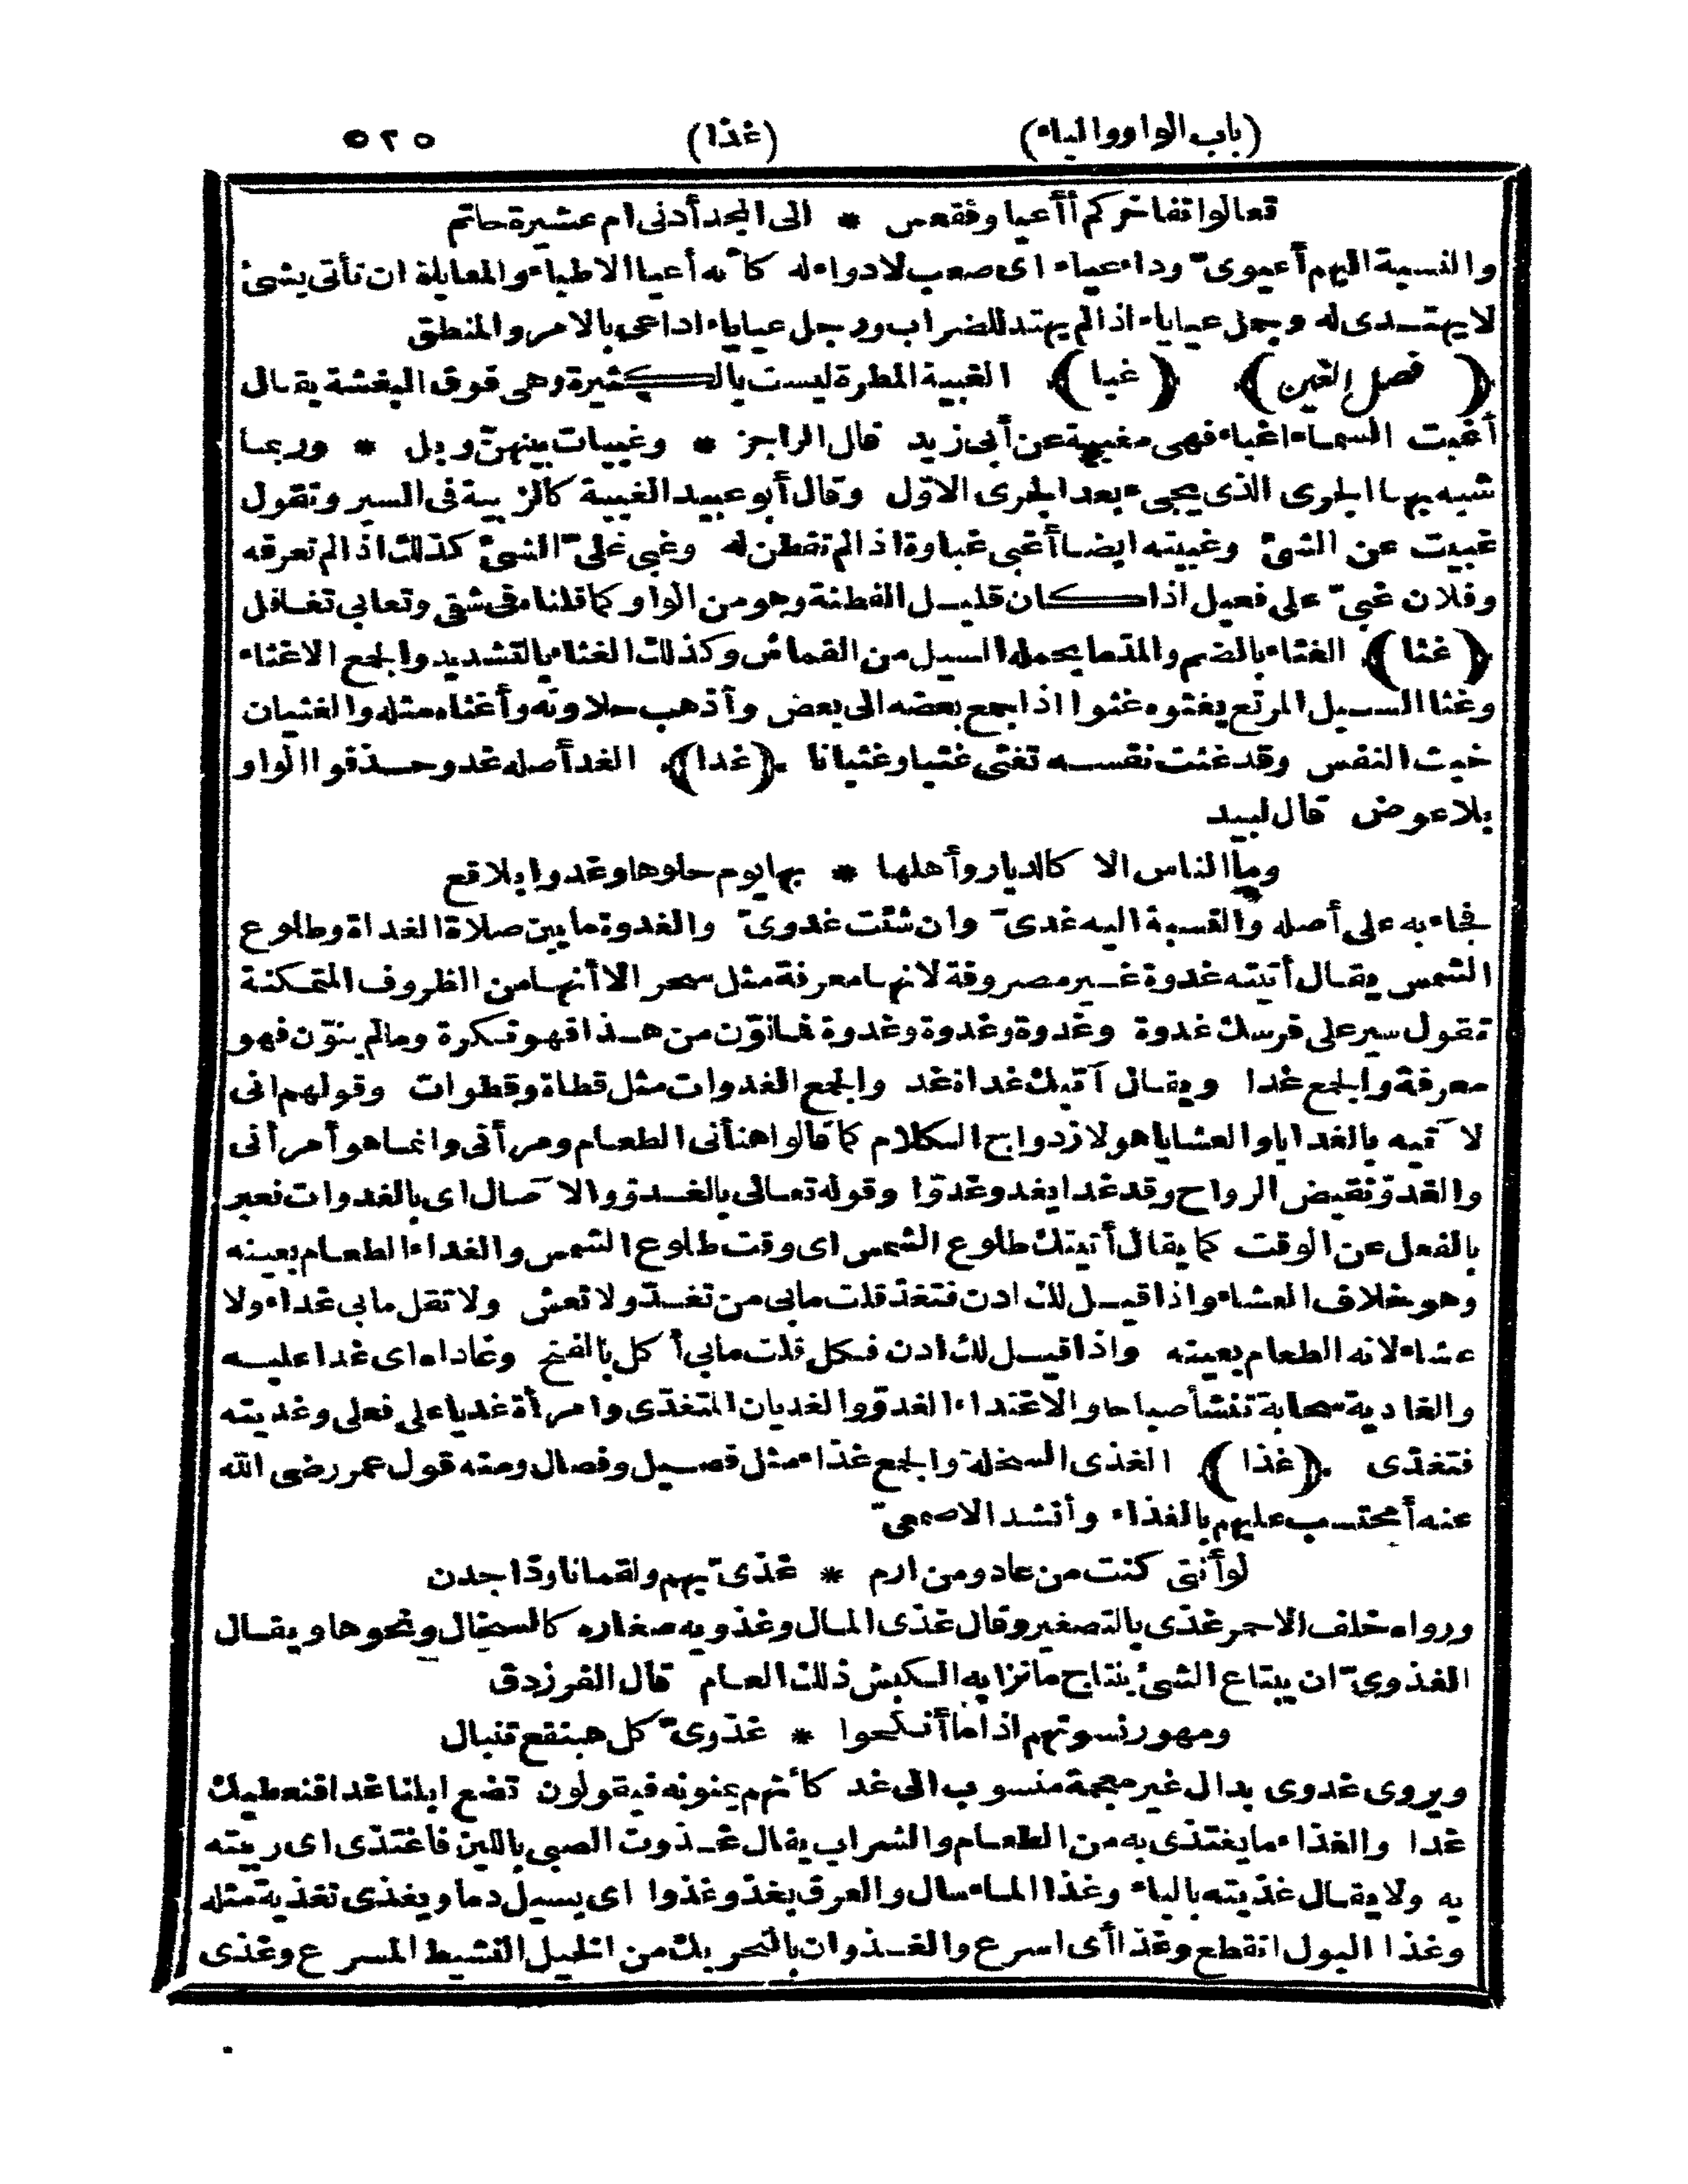 (باب الواو والياء) (غذا) ٥٢٥
تعالوا نفاخركم أأعيا وفقعس * الى المجد أدنى ام عشيرة حاتم
والنسبة اليهم أعيوىّ وداء عياء اى صعب لا دواء له كأنه أعيا الاطباء والمعاياة ان تأتى بشئ
لا يهتدى له وجمل عياياء اذا لم يهتد للضراب ورجل عياياء اذا عى بالامر والمنطق
﴿فصل الغين﴾ ﴿غبا﴾ الغبية المطرة ليست بالكثيرة وهى فوق البغشة يقال
أغبت السماء اغباء فهى مغبية عن أبى زيد قال الراجز * وغبيات بينهنّ وبل * وربما
شبه بها الجرى الذى يجىء بعد الجرى الاوّل وقال أبو عبيد الغبية كالزبية فى السير وتقول
غبيت عن الشئ وغبيته ايضا أغبى غباوة اذا لم تفطن له وغبى علىّ الشئ كذلك اذا لم تعرفه
وفلان غبىّ على فعيل اذا كان قليل الفطنة وهو من الواو كما قلناه فى شقى وتغابى تغافل
﴿غثا﴾ الغثاء بالضم والمدّ ما يحمله السيل من القماش وكذلك الغثاء بالتشديد والجمع الاغثاء
وغثا السيل المرتع يغثوه غثوا اذا جمع بعضه الى بعض وأذهب حلاوته وأغثاه مثله والغثيان
خبث النفس وقد غثت نفسه تغثى غثيا وغثيانا ﴿غدا﴾ الغد أصله غدو حذفوا الواو
بلا عوض قال لبيد
وما الناس الا كالديار وأهلها * بها يوم حلوها وغدوا بلاقع
فجاء به على أصله والنسبة اليه غدىّ وان شئت غدوىّ والغدوة ما بين صلاة الغداة وطلوع
الشمس يقال أتيته غدوة غير مصروفة لانها معرفة مثل سحر الا أنها من الظروف المتمكنة
تقول سير على فرسك غدوة وغدوة وغدوة وغدوة فما نوّن من هذا فهو نكرة وما لم ينوّن فهو
معرفة والجمع غدا ويقال آتيك غداة غد والجمع الغدوات مثل قطاة وقطوات وقولهم انى
لآتيه بالغدايا والعشايا هو لازدواج الكلام كما قالوا هنأنى الطعام ومرأنى وانما هو أمرأنى
والغدوّ نقيض الرواح وقد غدا يغدو غدوّا وقوله تعالى بالغدوّ والآصال اى بالغدوات فعبر
بالفعل عن الوقت كما يقال أتيتك طلوع الشمس اى وقت طلوع الشمس والغداء الطعام بعينه
وهو خلاف العشاء واذا قيل لك ادن فتغدّ قلت ما بى من تغدّ ولا تعش ولا تقل ما بى غداء ولا
عشاء لانه الطعام بعينه واذا قيل لك ادن فكل قلت ما بى أكل بالفتح وغاداه اى غدا عليه
والغادية سحابة تنشأ صباحا والاغتداء الغدوّ والغديان المتغدّى وامرأة غديا على فعلى وغديته
فتغدّى ﴿غذا﴾ الغذى السخلة والجمع غذاء مثل فصيل وفصال ومنه قول عمر رضى الله
عنه أمحتسب عليهم بالغذاء وأنشد الاصمعىّ
لو أننى كنت من عاد ومن ارم * غذىّ بهم ولقمانا وذا جدن
ورواه خلف الاحمر غذى بالتصغير وقال غذى المال وغذويه صغاره كالسخال ونحوها ويقال
الغذوىّ ان يبتاع الشئ بنتاج ما نزا به الكبش ذلك العام قال الفرزدق
ومهور نسوتهم اذا ما أنكحوا * غذوىّ كل هبنقع تنبال
ويروى غدوى بدال غير معجمة منسوب الى غد كأنهم يمنونه فيقولون تضع ابلنا غدا فنعطيك
غدا والغذاء ما يغتذى به من الطعام والشراب يقال غذوت الصبى باللبن فاغتذى اى ربيته
به ولا يقال غذيته بالياء وغذا الماء سال والعرق يغذو غذوا اى يسيل دما ويغذى تغذية مثله
وغذا البول انقطع وغذا أى اسرع والغذوان بالتحريك من الخيل النشيط المسرع وغذى